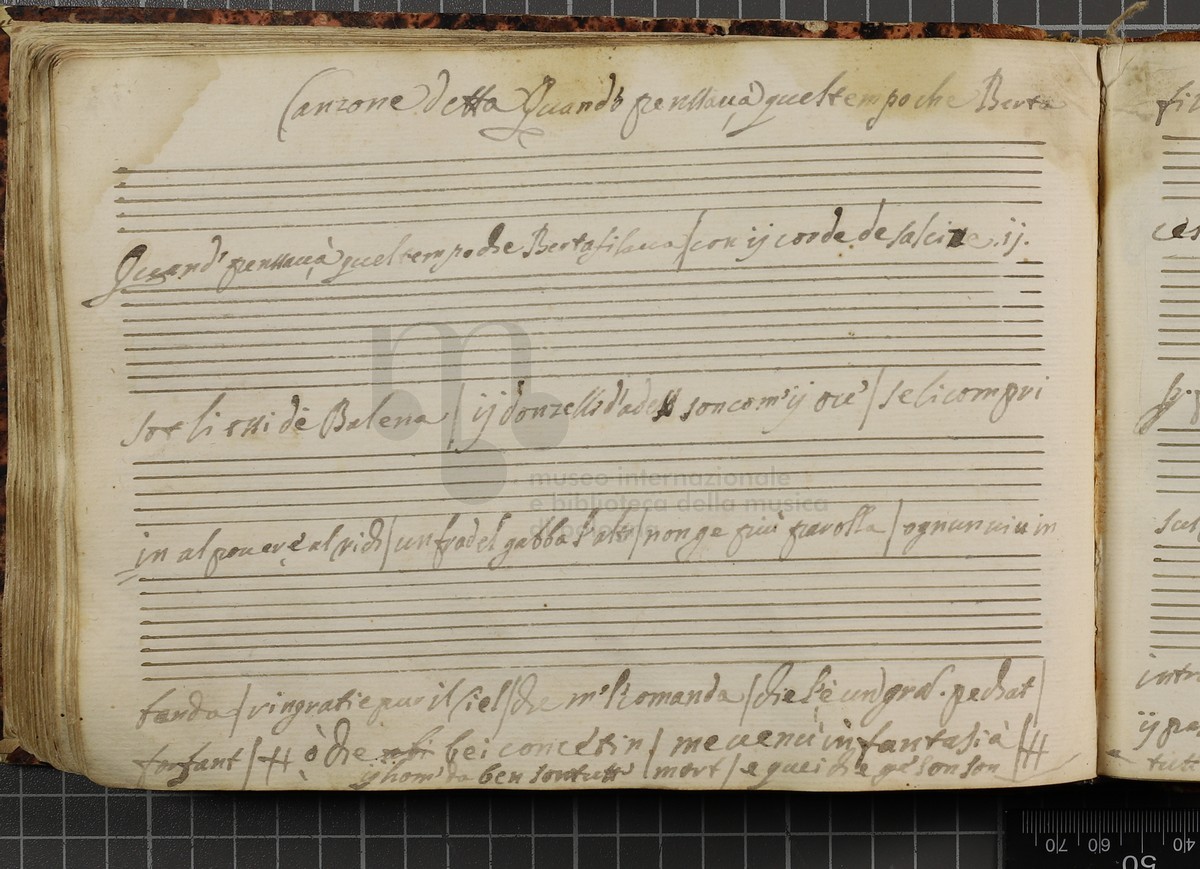 Canzone detta Quand' penssavà quel tempo che Berta
Quand' penssavà quel tempo che Berta filava / con ij corde de salcize .ij.
sot li ossi dè Balena / ij donzelli d'adess son com' ij oce' / se li compri
in al pover è al rich / un fradel gabba l'altr / non ge piu parolla / ognun viu in
fanda / ringratie pur il Ciel / che m' Komanda / che l'è un gral. pechat /
forfant / H ò che bei concetin / me venù in fantasia / H
ij hom' da ben son tutt' mort / e quei che gè son son
museo internazionale
e biblioteca della musica
di bologna
fil
ces
intr
ij pa
tutt
70 60 50 40